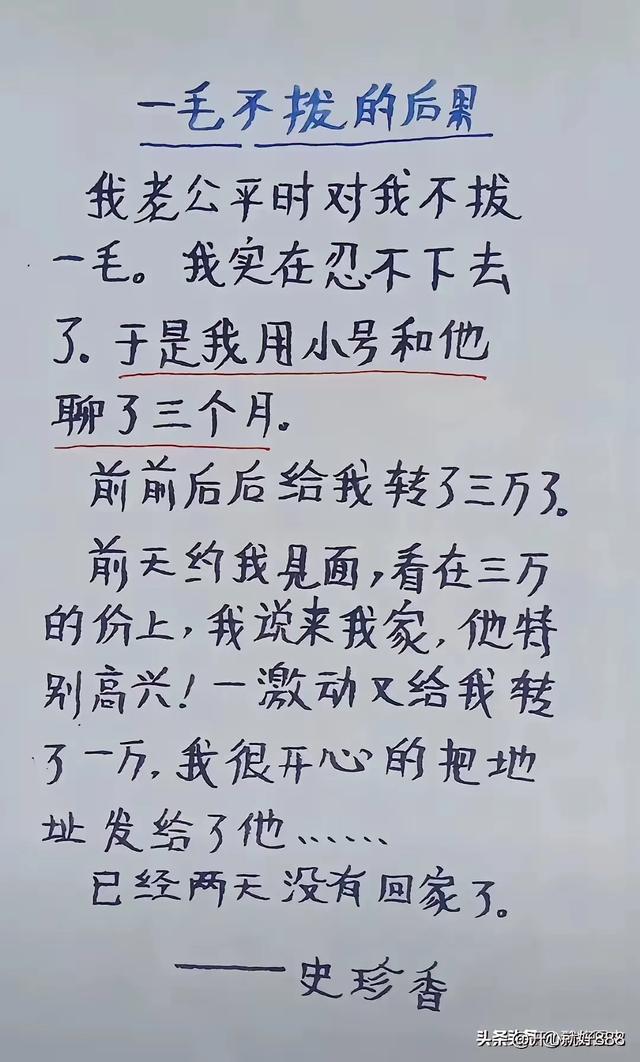 一毛不拔的后果
我老公平时对我不拔
一毛。我实在忍不下去
了.于是我用小号和他
聊了三个月。
前前后后给我转了三万了。
前天约我見面,看在三万
的份上,我说来我家,他特
别高兴!一激动又给我转
了一万,我很开心的把地
址发给了他……
已经两天没有回家了。
——史珍香
头条 @开心就好888